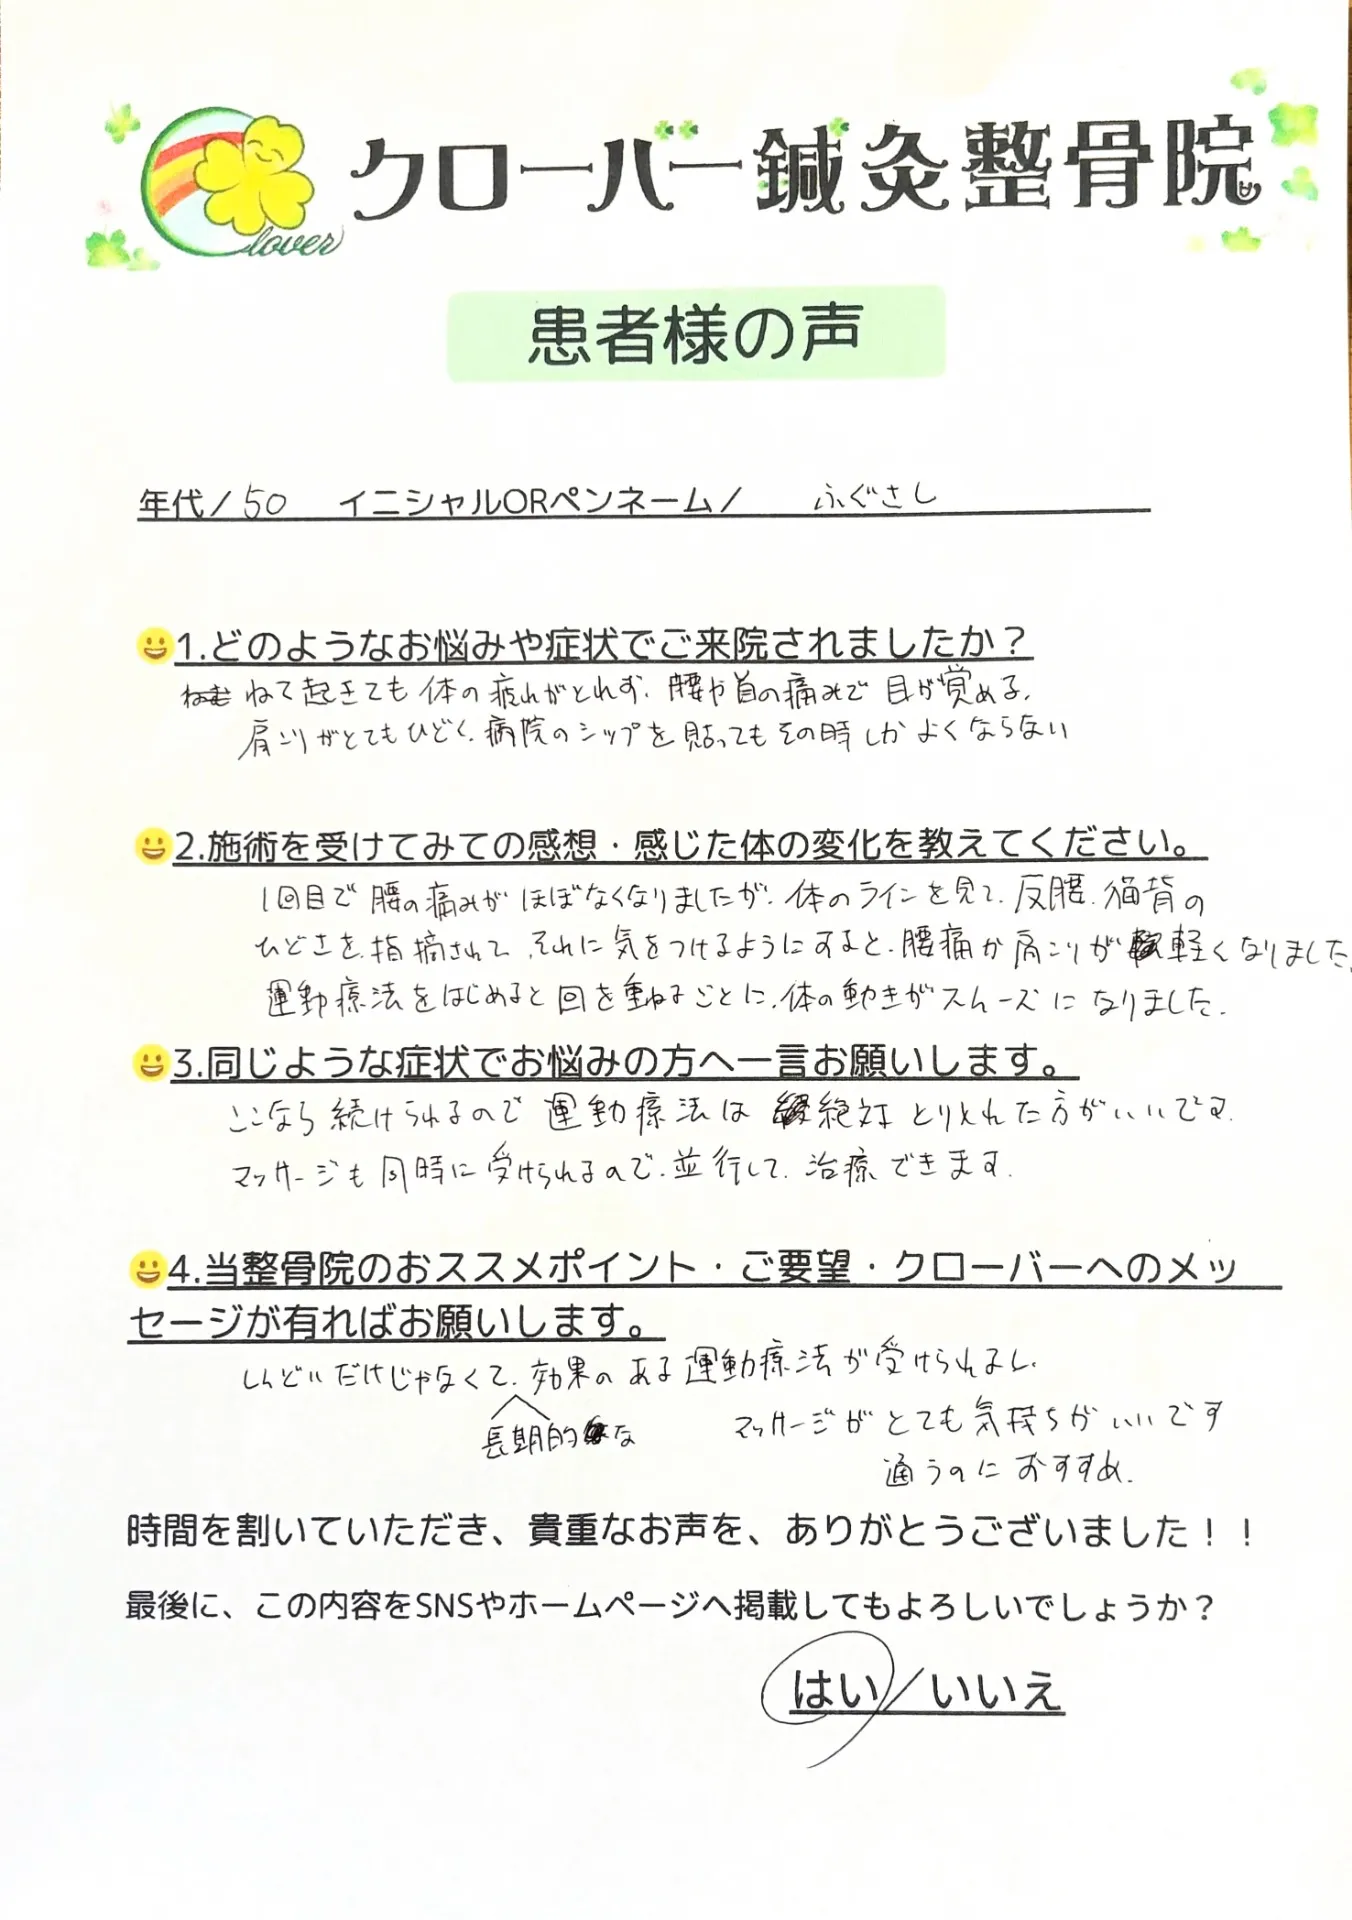 Clover
クローバー鍼灸整骨院
患者様の声
年代/50 イニシャルORペンネーム/ ふぐさし
1.どのようなお悩みや症状でご来院されましたか？
ねて起きても体の疲れがとれず、腰や首の痛みで目が覚める、
肩こりがとてもひどく、病院のシップを貼ってもその時しかよくならない
2.施術を受けてみての感想・感じた体の変化を教えてください。
1回目で腰の痛みがほぼなくなりましたが、体のラインを見て、反腰、猫背の
ひどさを、指摘されて、それに気をつけるようにすると、腰痛か肩こりが軽くなりました、
運動療法をはじめると回を重ねるごとに、体の動きがスムーズになりました。
3.同じような症状でお悩みの方へ一言お願いします。
ここなら続けられるので運動療法は絶対とりいれた方がいいです。
マッサージも同時に受けられるので、並行して、治療できます。
4.当整骨院のおススメポイント・ご要望・クローバーへのメッ
セージが有ればお願いします。
しんどいだけじゃなくて、効果のある運動療法が受けられるし、
長期的な マッサージがとても気持ちがいいです
通うのにおすすめ。
時間を割いていただき、貴重なお声を、ありがとうございました！！
最後に、この内容をSNSやホームページへ掲載してもよろしいでしょうか？
はい/いいえ